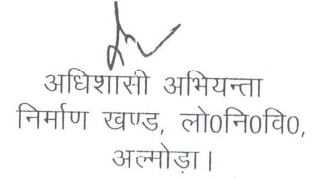 अधिशासी अभियन्ता
निर्माण खण्ड, लो0नि0वि0,
अल्मोड़ा।